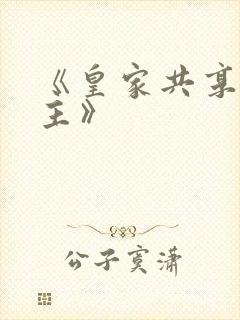 《皇家共享
主》
公子寞潇